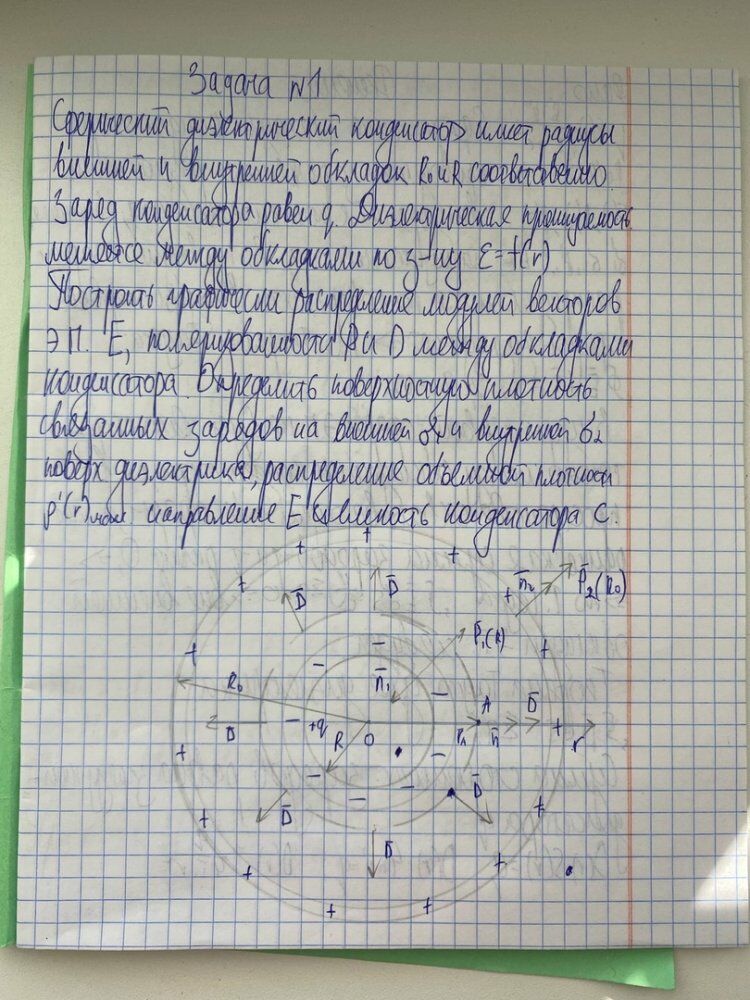 Задача №1
Сферический диэлектрический конденсатор имеет радиусы
внешней и внутренней обкладок R₀ и R соответственно.
Заряд конденсатора равен q. Диэлектрическая проницаемость
меняется между обкладками по з-ну ε=f(r)
Построить графически распределение модулей векторов
Э.П. E, поляризованности P и D между обкладками
конденсатора. Определить поверхностную плотность
связанных зарядов на внешней и внутренней σ₂
поверх диэлектрика, распределение объемной плотности
ρ'(r) направление E ёмкость конденсатора C.
+ + +
+ D̄ D̄ + n̄₂ P̄₂(R₀)
+ − − P̄₁(R) +
R₀ n̄₁ − A D̄
D − +q R O r_A n̄ + r
+ − − − − D̄ +
+ D̄ D̄ +
+ + +